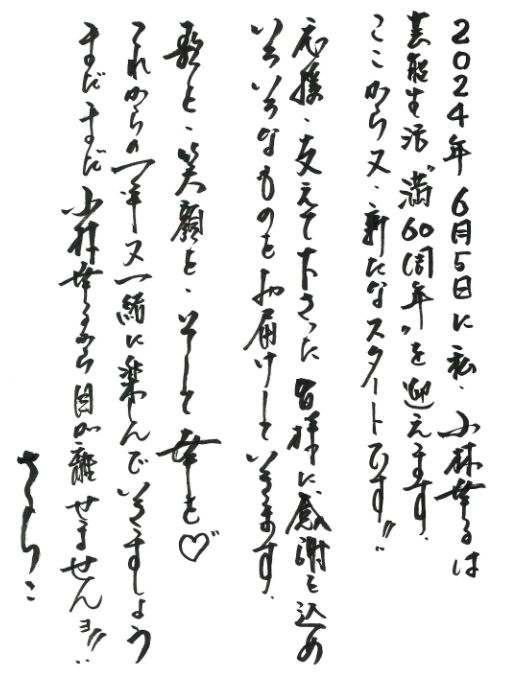 2024年 6月5日に 私、小林幸子は
芸能生活〝満60周年〟を迎えます。
ここから又、新たなスタートです!!
応援、支えて下さった 皆様に感謝を込め
いろいろなものをお届けしていきます。
歌と、笑顔を、そして 幸を♡
これからの一年又一緒に楽しんでいきましょう
まだまだ 小林幸子から 目が離せませんヨ!!
さちこ